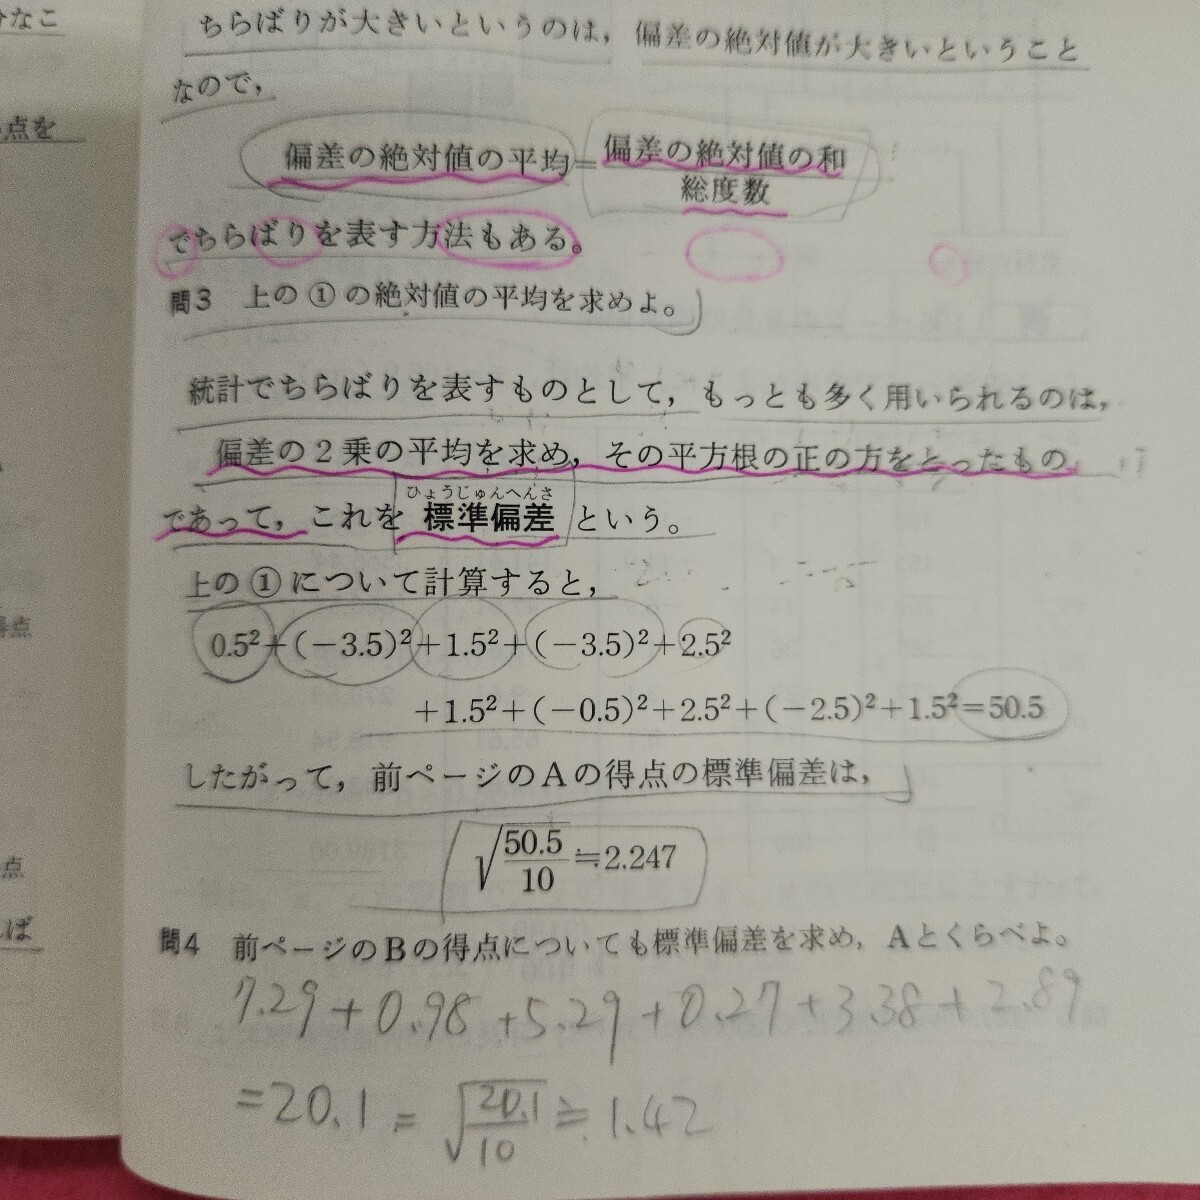 なこ
点を
得点
点
ば
ちらばりが大きいというのは，偏差の絶対値が大きいということ
なので，
偏差の絶対値の平均＝偏差の絶対値の和
総度数
でちらばりを表す方法もある。
問3 上の①の絶対値の平均を求めよ。
統計でちらばりを表すものとして，もっとも多く用いられるのは，
偏差の2乗の平均を求め，その平方根の正の方をとったもの
ひょうじゅんへんさ
であって，これを 標準偏差 という。
上の①について計算すると，
0.5²+(−3.5)²+1.5²+(−3.5)²+2.5²
+1.5²+(−0.5)²+2.5²+(−2.5)²+1.5²=50.5
したがって，前ページのAの得点の標準偏差は，
√50.5/10≒2.247
問4 前ページのBの得点についても標準偏差を求め，Aとくらべよ。
7.29+0.98+5.29+0.27+3.38+2.89
=20.1=√20.1/10≒1.42